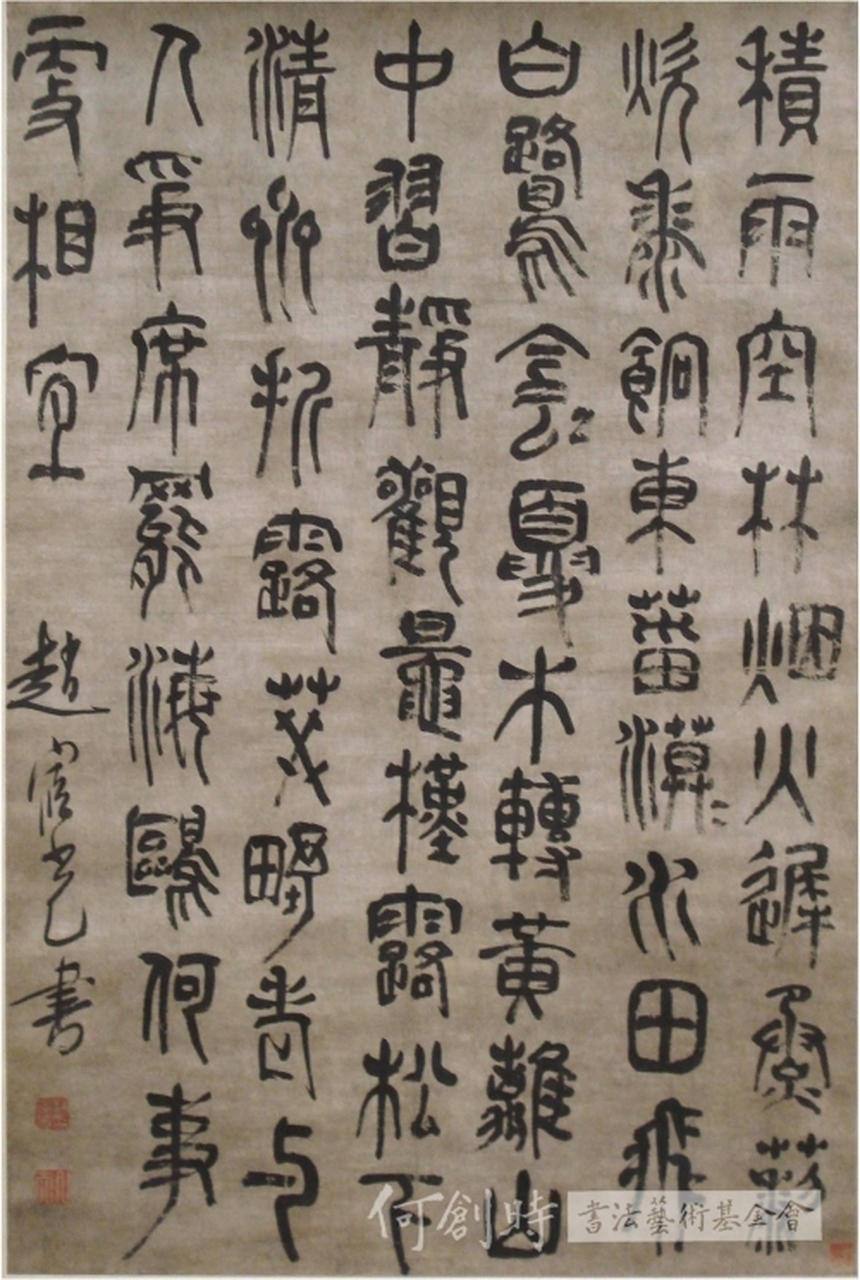 積雨空林烟火遲蒸藜
炊黍餉東菑漠〻水田飛
白鷺陰〻夏木轉黃離山
中習靜觀鼂槿露松下
清齋折露葵野老与
人爭席罷海鷗何事
相宜
趙宧光書
何創時書法藝術基金會